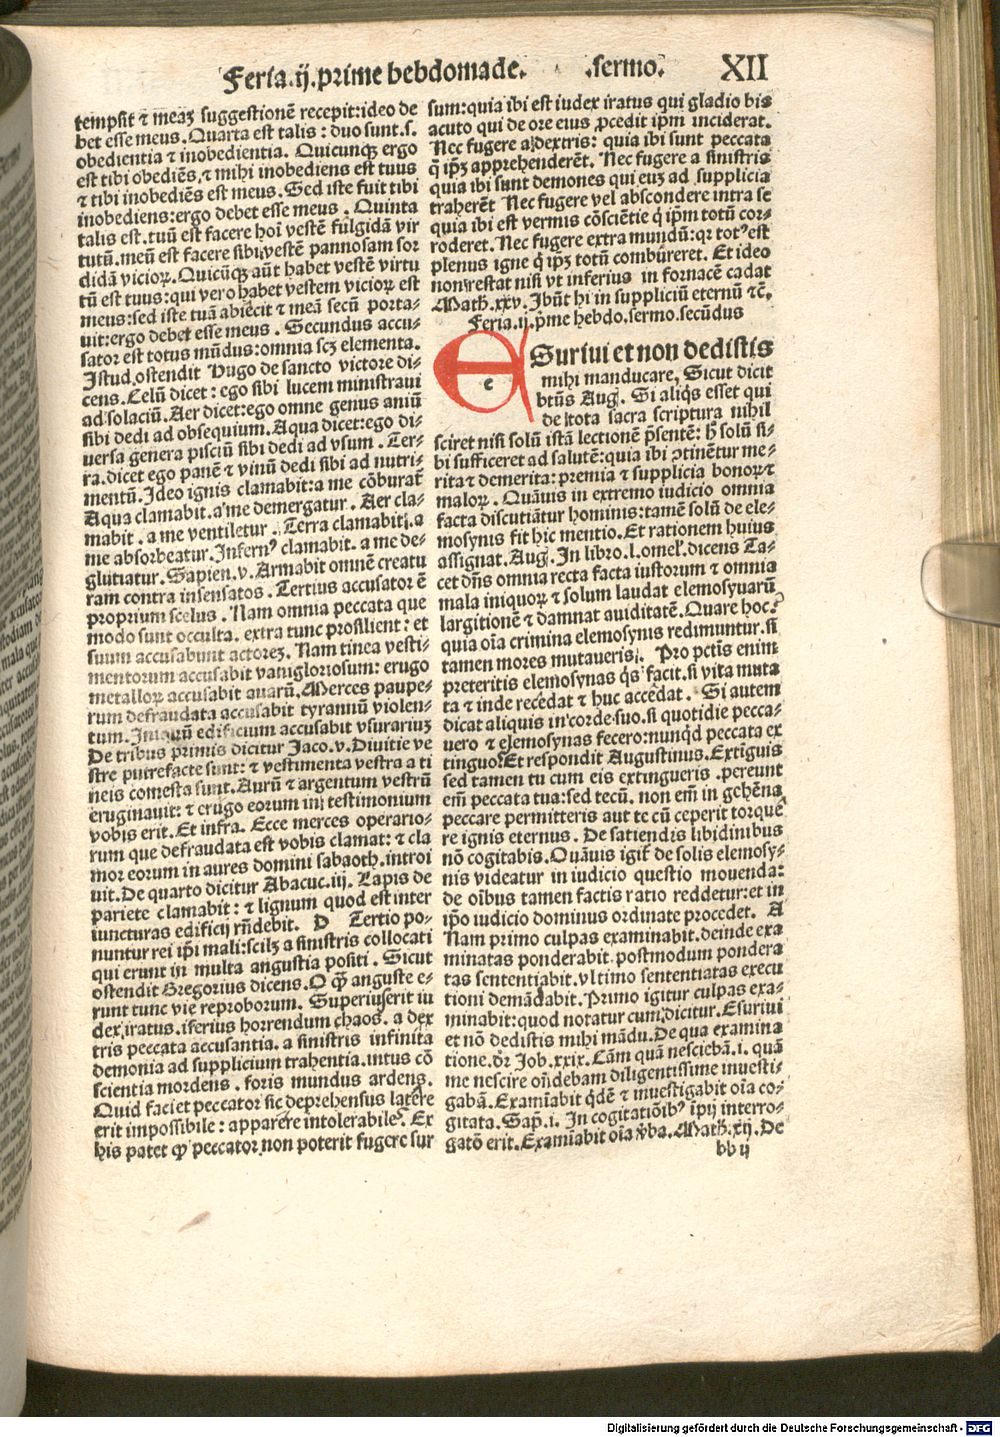 Feria.ij.prime hebdomade. .sermo. XII
tempsit ⁊ meaꝫ suggestionē recepit:ideo de
bet esse meus. Quarta est talis: duo sunt.s.
obedientia ⁊ inobedientia. Quicunqꝫ ergo
est tibi obediēs,⁊ mihi inobediens est tuus
⁊ tibi inobediēs est meus. Sed iste fuit tibi
inobediens:ergo debet esse meus. Quinta
talis est.tuū est facere hoī vestē fulgidā vir
tutū.meū est facere sibi vestē pannosam sor
didā vicioꝝ. Quicūqꝫ aūt habet vestē virtu
tū est tuus:qui vero habet vestem vicioꝝ est
meus:sed iste tuā abiecit ⁊ meā secū porta-
uit:ergo debet esse meus. Secundus accu-
sator est totus mūdus:omnia scꝫ elementa.
Istud ostendit Hugo de sancto victore di-
cens. Celū dicet: ego sibi lucem ministraui
ad solaciū. Aer dicet:ego omne genus auiū
sibi dedi ad obsequium. Aqua dicet:ego di-
uersa genera pisciū sibi dedi ad vsum. Ter-
ra.dicet ego panē ⁊ vinū dedi sibi ad nutri-
mentū. Ideo ignis clamabit:a me cōburat̄
Aqua clamabit.a me demergatur. Aer cla-
mabit. a me ventiletur. Terra clamabit. a
me absorbeatur. Infernꝰ clamabit. a me de-
glutiatur. Sapien.v. Armabit omnē creatu
ram contra insensatos. Tertius accusator ē
proprium scelus. Nam omnia peccata que
modo sunt occulta. extra tunc prosilient: et
suum accusabunt actoreꝫ. Nam tinea vesti-
mentorum accusabit vanigloriosum: erugo
metalloꝝ accusabit auarū. Merces paupe-
rum defraudata accusabit tyrannū violen-
tum. Iniquū edificium accusabit vsurariuꝫ
De tribus primis dicitur Jaco.v. Diuitie ve
stre putrefacte sunt: ⁊ vestimenta vestra a ti
neis comesta sunt. Aurū ⁊ argentum vestrū
eruginauit: ⁊ erugo eorum inj testimonium
vobis erit. Et infra. Ecce merces operario-
rum que defraudata est vobis clamat: ⁊ cla
mor eorum in aures domini sabaoth.introi
uit. De quarto dicitur Abacuc.iij. Lapis de
pariete clamabit: ⁊ lignum quod est inter
iuncturas edificij rn̄debit. D Tertio po-
nuntur rei ip̄i mali:scilꝫ a sinistris collocati
qui erunt in multa angustia positi. Sicut
ostendit Gregorius dicens. O q̄ꝫ anguste e-
runt tunc vie reproborum. Superius erit iu
dex iratus.iferius horrendum chaos. a dex
tris peccata accusantia. a sinistris infinita
demonia ad supplicium trahentia.intus cō
scientia mordens. foris mundus ardens.
Quid faciet peccator sic deprehensus latere
erit impossibile: apparere intolerabile. Ex
his patet ꝙ peccator non poterit fugere sur
sum:quia ibi est iudex iratus qui gladio bis
acuto qui de ore eius ꝓcedit ip̄m inciderat.
Nec fugere a dextris: quia ibi sunt peccata
q̄ ip̄ꝫ apprehenderēt. Nec fugere a sinistris
quia ibi sunt demones qui euꝫ ad supplicia
traherēt Nec fugere vel abscondere intra se
quia ibi est vermis cōsciētie q̄ ip̄m totū cor-
roderet. Nec fugere extra mundū:qꝛ totꝰ est
plenus igne q̄ ip̄ꝫ totū combureret. Et ideo
non restat nisi vt inferius in fornacē cadat
Math.xxv. Ibūt hi in suppliciū eternū ⁊c̄.
Feria.ij.p̄me hebdo.sermo.secūdus
ESuriui et non dedistis
mihi manducare, Sicut dicit
btūs Aug. Si aliqs esset qui
de tota sacra scriptura nihil
sciret nisi solū istā lectionē p̄sentē: hꝫ solū si-
bi sufficeret ad salutē:quia ibi ↄtinētur me-
rita ⁊ demerita: premia ⁊ supplicia bonoꝝ ⁊
maloꝝ. Quāuis in extremo iudicio omnia
facta discutiātur hominis:tamē solū de ele-
mosynis fit hic mentio. Et rationem huius
assignat. Aug. In libro.l.omel'. dicens Ta-
cet dn̄s omnia recta facta iustorum ⁊ omnia
mala iniquoꝝ ⁊ solum laudat elemosynarū
largitionē ⁊ damnat auiditatē. Quare hoc?
quia oīa crimina elemosynis redimuntur.si
tamen mores mutaueris. Pro pctīs enim
preteritis elemosynas q̄s facit.si vita muta
ta ⁊ inde recedat ⁊ huc accedat. Si autem
dicat aliquis in corde suo.si quotidie pecca-
uero ⁊ elemosynas fecero:nunqd peccata ex
tinguo? Et respondit Augustinus. Extīguis
sed tamen tu cum eis extingueris. pereunt
em̄ peccata tua:sed tecū. non em̄ in gehēna
peccare permitteris aut te cū ceperit torquē
re ignis eternus. De satiendis libidinibus
nō cogitabis. Quāuis igit̄ de solis elemosy-
nis videatur in iudicio questio mouenda:
de oībus tamen factis ratio reddetur:et in
ip̄o iudicio dominus ordinate procedet. A
Nam primo culpas examinabit.deinde exa
minatas ponderabit. postmodum pondera
tas sententiabit.vltimo sententiatas execu
tioni demādabit. Primo igitur culpas exa-
minabit:quod notatur cum dicitur. Esuriui
et nō dedistis mihi mādu. De qua examina
tione.dr̄ Job.xxix. Cām quā nesciebā.i. quā
me nescire on̄debam diligentissime inuesti-
gabā. Examīabit qdē ⁊ inuestigabit oīa co-
gitata. Sap̄.i. In cogitatiōibꝰ īpij interro-
gatō erit. Examīabit oīa v̄ba. Math.xij. De
bb ij
e
Digitalisierung gefördert durch die Deutsche Forschungsgemeinschaft - DFG